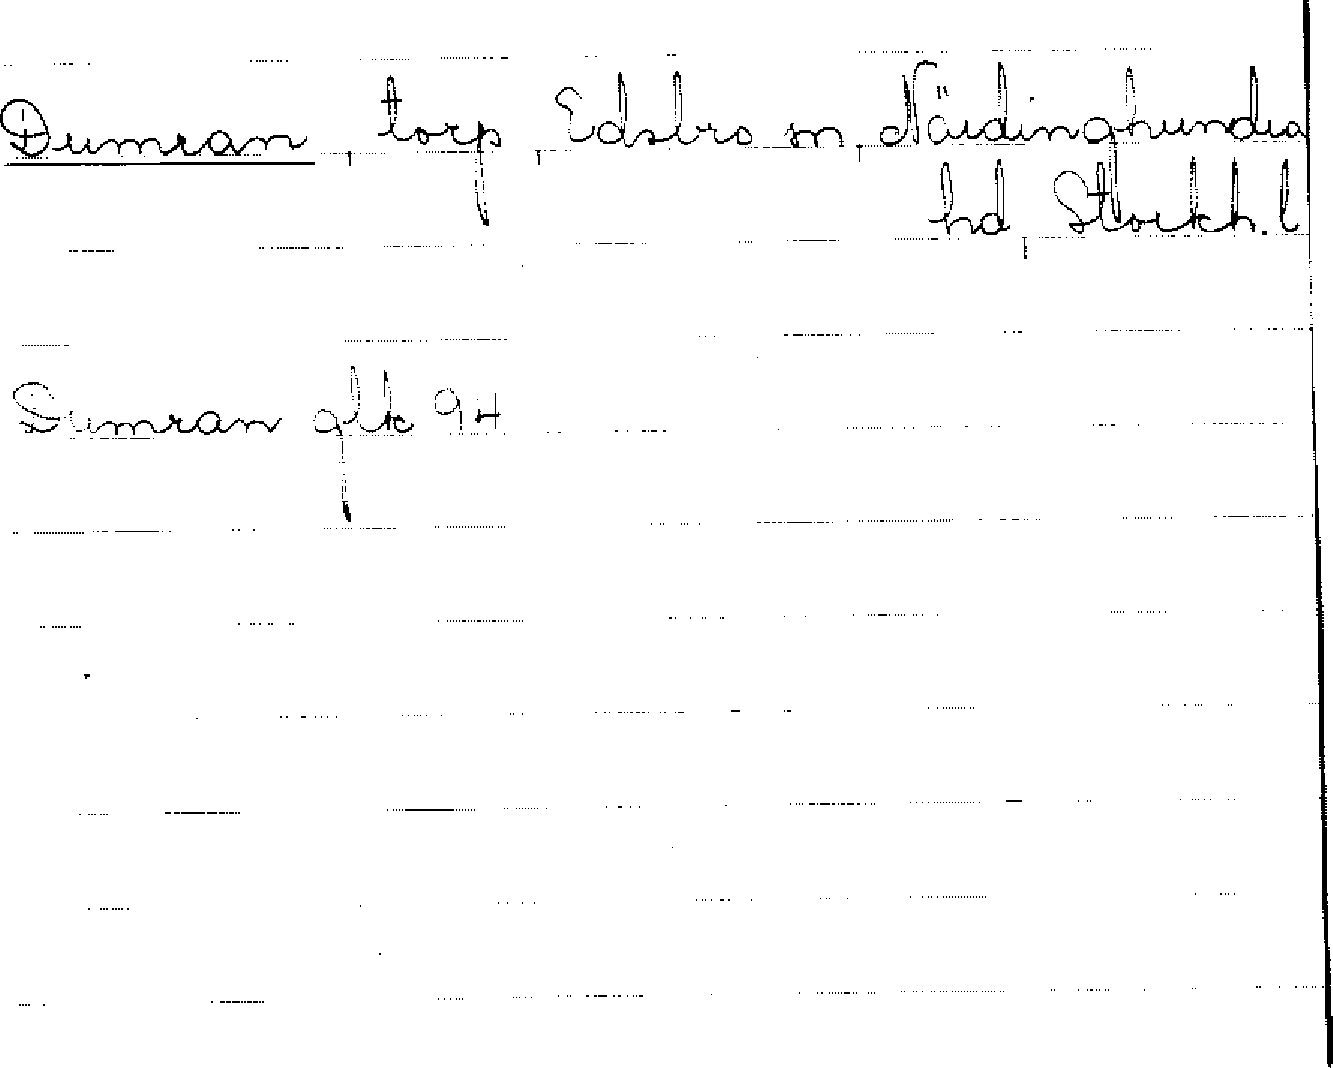 Dumran, torp, Edsbro sn, Närdinghundra
hd, Stockh. l
Dumran glk 94